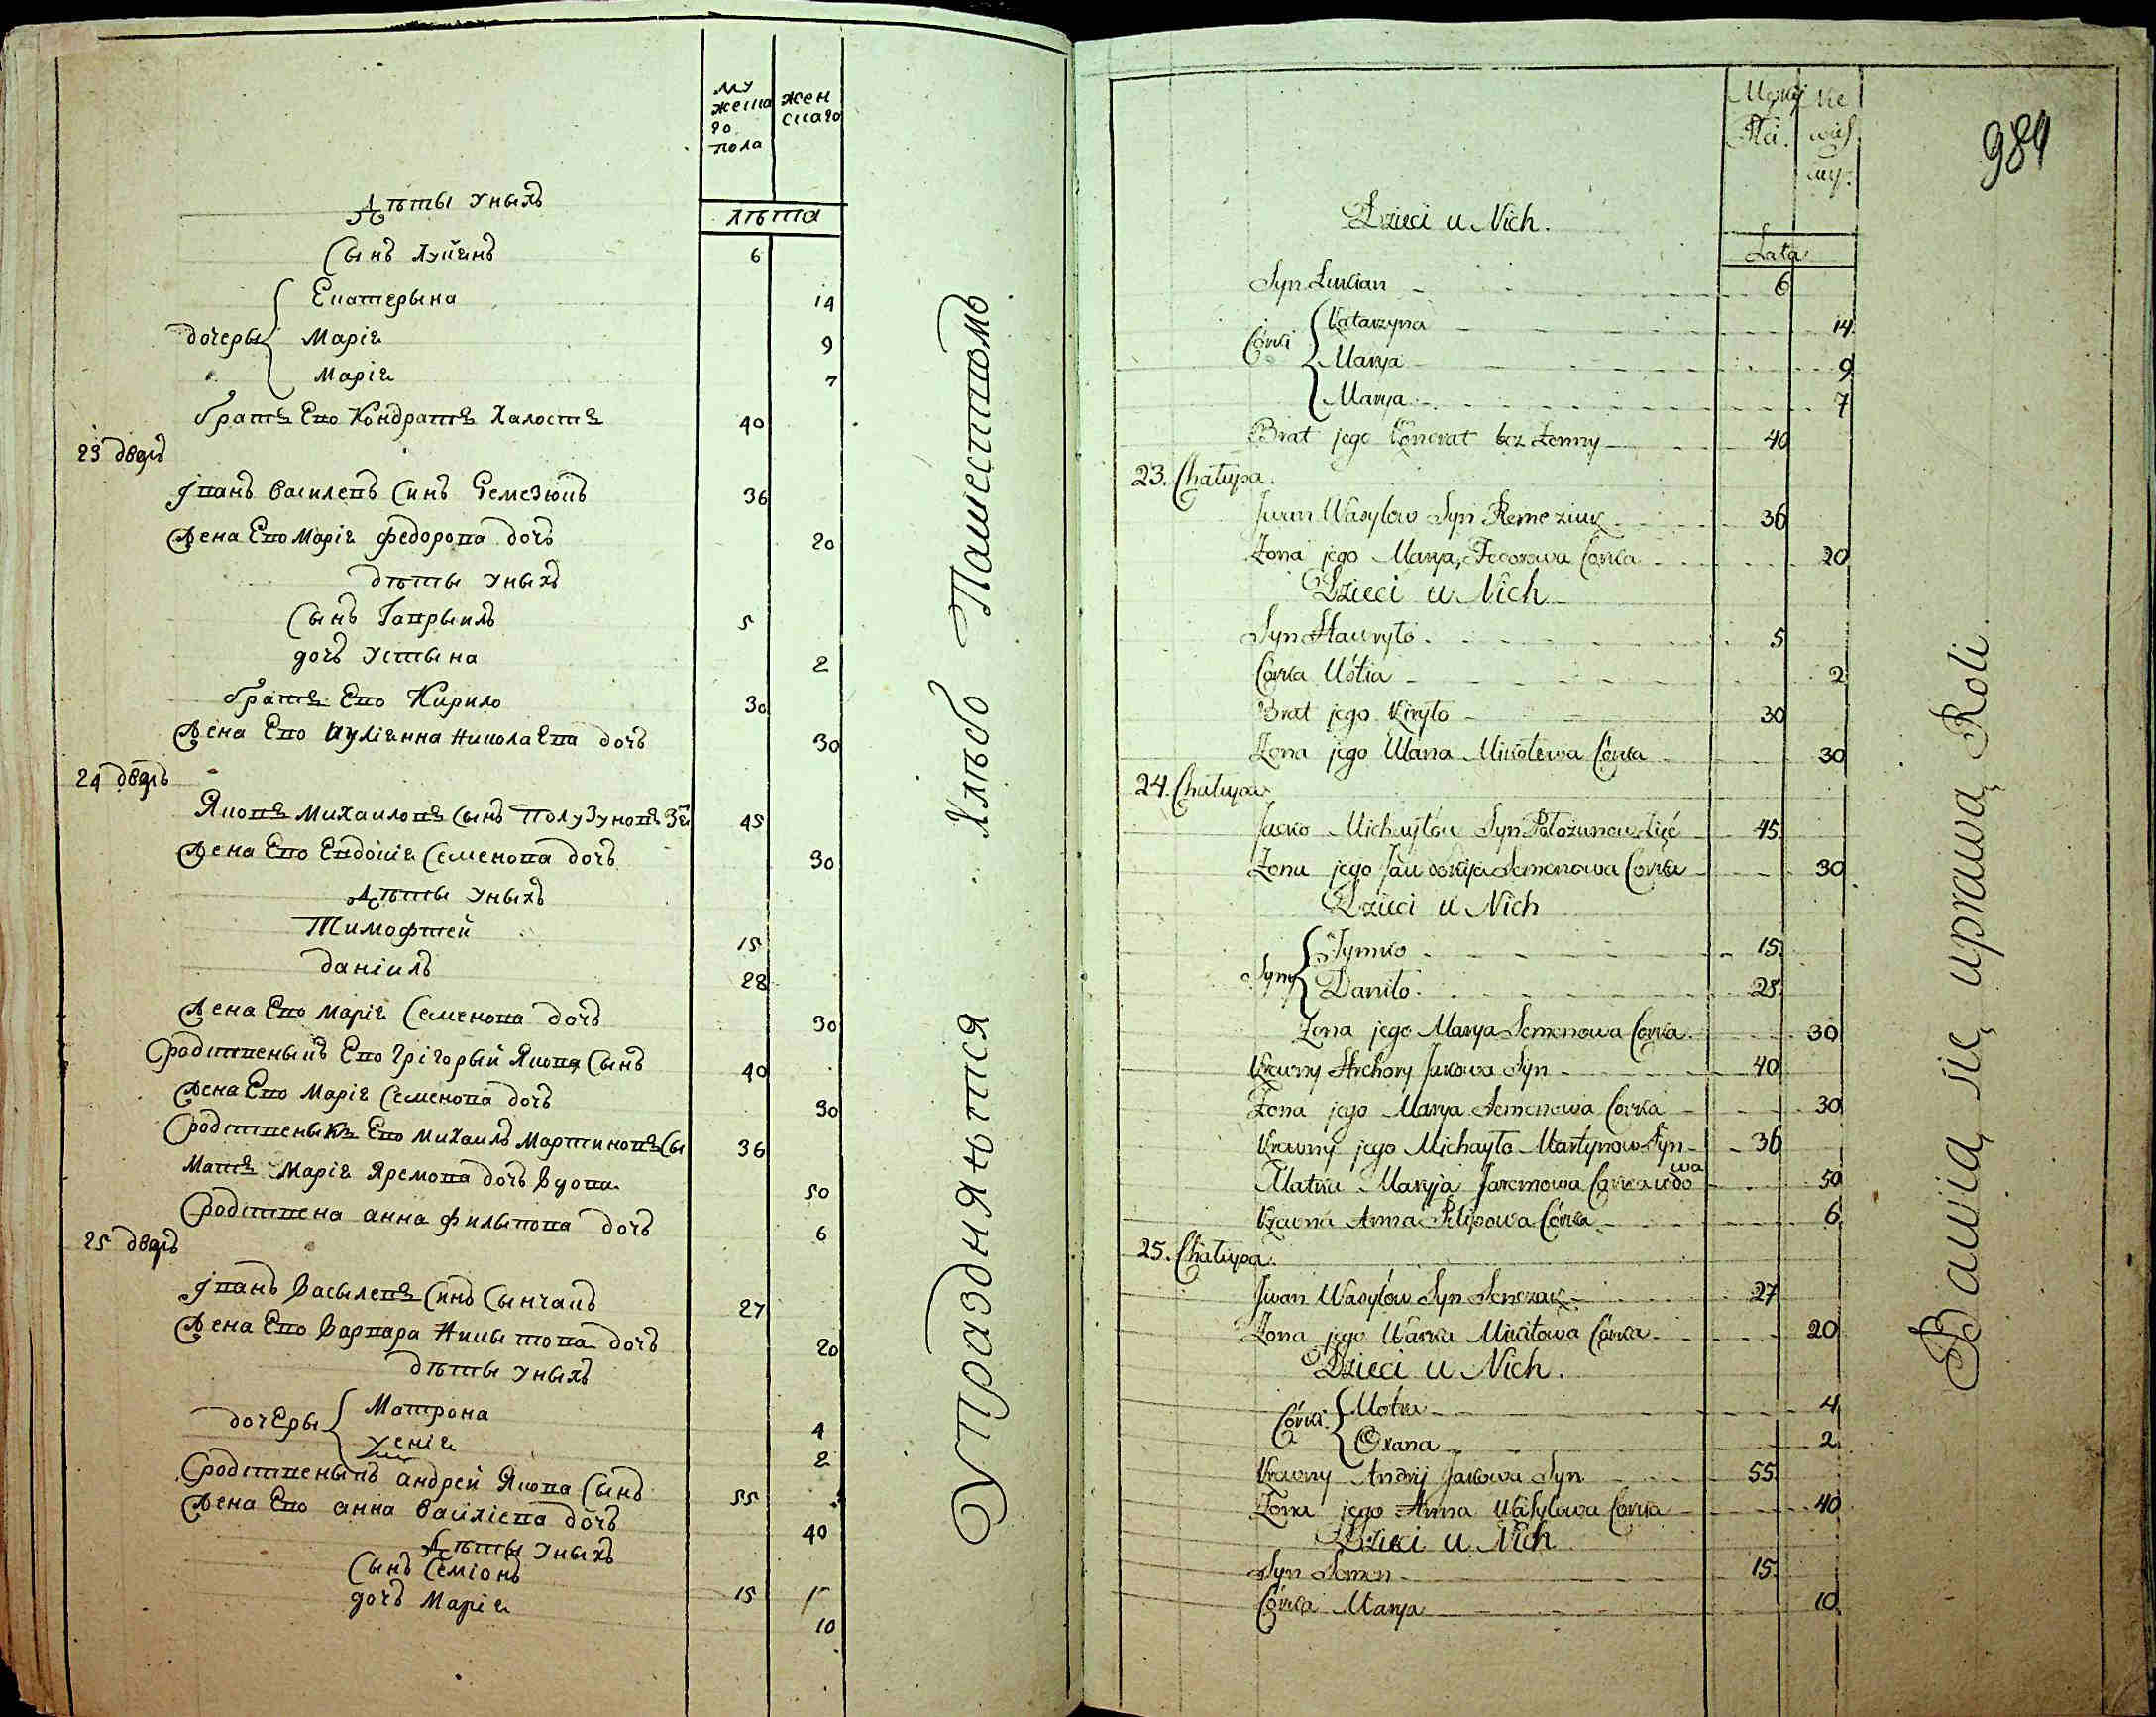 му
жеска
го
пола
жен
скаго
лѣта
Дѣты у ныхъ
Сынъ Лукіянъ 6
Екатерына 14
дочеры Марія 9
Марія 7
братъ Его Кондратъ Халостъ 40
23 дворъ
Іванъ Василевъ Синъ Ремезюкъ 36
Жена Его Марія Федорова дочь 20
дѣты у ныхъ
Сынъ Гаврыилъ 5
дочь Устына 2
братъ Его Кирило 30
Жена Его Іуліянна Николаева дочь 30
24 дворъ
Яковъ Михаиловъ Сынъ Полузуновъ Зя 45
Жена Его Евдокія Семенова дочь 30
Дѣты у ныхъ
Тимофтей 15
Даніилъ 28
Жена Его Марія Семенова дочь 30
Сродственыкъ Его Грігорый Якова Сынъ 40
Жена Его Марія Семенова дочь 30
Сродственыкъ Его Михаилъ Мартиновъ Сы 36
Мать Марія Яремова дочь Вдова 50
Сродствена Анна Филыпова дочь 6
25 дворъ
Іванъ Васылевъ Синъ Сынчакъ 27
Жена Его Варвара Никытова дочь 20
дѣты у ныхъ
дочеры Матрона 4
Ксенія 2
Сродственыкъ Андрей Якова Сынъ 55
Жена Его Анна Васіліева дочь 40
Дѣты у ныхъ
Сынъ Семіонъ 15
дочь Марія 10
Упражняются Хлѣбо Пашествомъ
984
Męzki
Płci.
Nie
wias
Lata
Dzieci u Nich.
Syn Łukian 6
Córki Katarzyna 14
Marya 9
Marya 7
Brat jego Kondrat bez Żenny 40
23. Chałupa.
Jwan Wasylow Syn Remeziuk 36
Żona jego Marya Fedorowa Corka 20
Dzieci u Nich
Syn Hawryło 5
Córka Ustia 2
Brat jego Kiryło 30
Żona jego Ulana Mikołewa Córka 30
24. Chałupa
Jacko Michayłów Syn Połozunow Zięć 45
Żona jego Jawdokija Semenowa Corka 30
Dzieci u Nich
Syny Tymko 15
Daniło 28
Żona jego Marya Semenowa Corka 30
Krewny Hrehory Jakowa Syn 40
Żona jego Marya Semenowa Corka 30
Krewny jego Michayło Martynow Syn 36
Matka Maryja Jaremowa Corka wdowa 50
Krewna Anna Pilipowa Córka 6
25. Chałupa.
Jwan Wasylów Syn Senczak 27
Żona jego Warka Mikitowa Córka 20
Dzieci u Nich.
Córki Motra 4
Oxana 2
Krewny Andrij Jakowa Syn 55
Żona jego Anna Wasylowa Corka 40
Dzieci u Nich
Syn Semen 15
Córka Marya 10
Bawią się uprawą Roli.